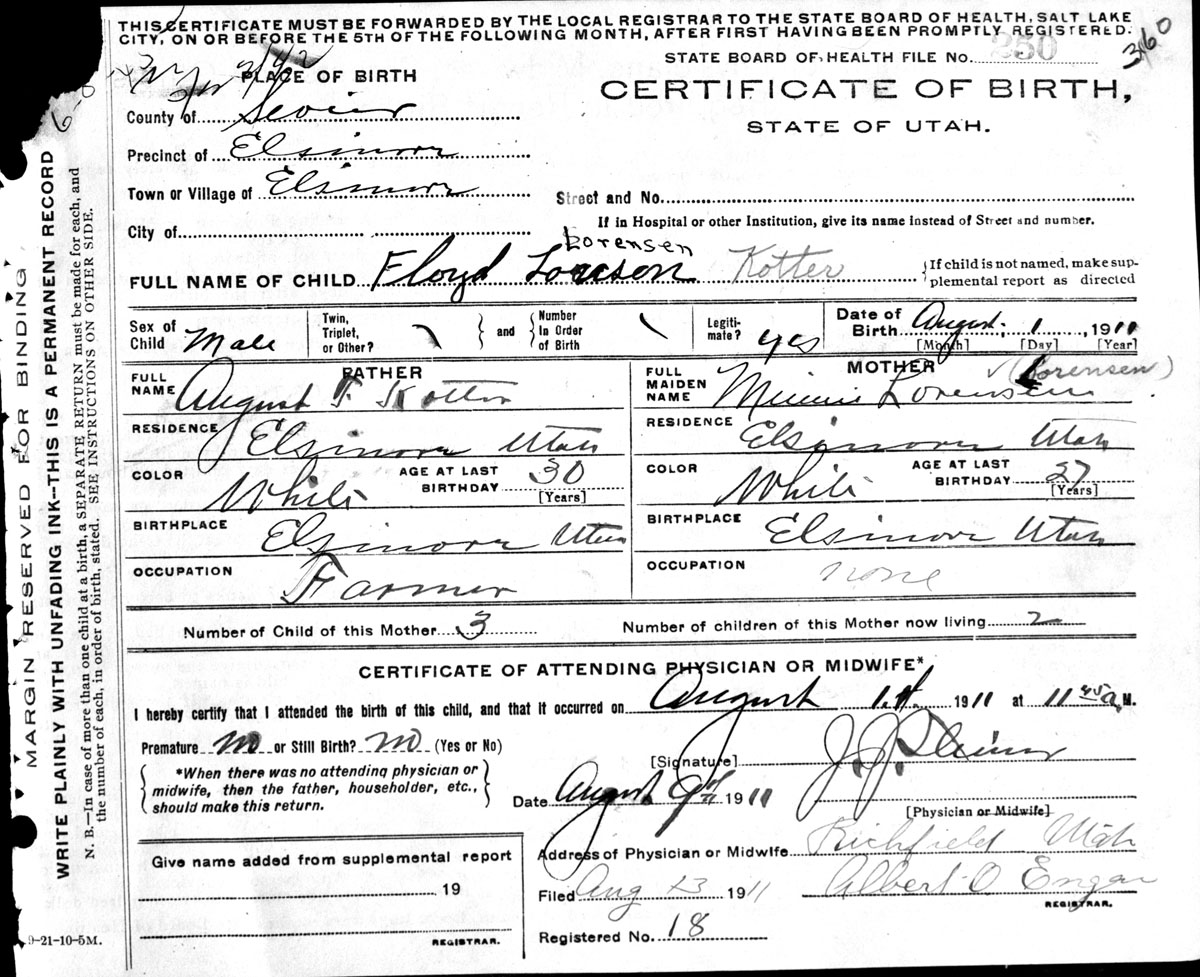 THIS CERTIFICATE MUST BE FORWARDED BY THE LOCAL REGISTRAR TO THE STATE BOARD OF HEALTH, SALT LAKE
CITY, ON OR BEFORE THE 5TH OF THE FOLLOWING MONTH, AFTER FIRST HAVING BEEN PROMPTLY REGISTERED.
360
STATE BOARD OF HEALTH FILE No. 250
PLACE OF BIRTH
CERTIFICATE OF BIRTH,
STATE OF UTAH.
County of Sevier
Precinct of Elsinore
Town or Village of Elsinore
Street and No.
If in Hospital or other Institution, give its name instead of Street and number.
City of
Lorensen
FULL NAME OF CHILD Floyd Kotter
{If child is not named, make sup-
plemental report as directed
Sex of Child Male
Twin, Triplet, or Other? } and { Number In Order of Birth
Legiti-mate? yes
Date of Birth August 1, 1911
[Month] [Day] [Year]
FATHER
FULL NAME August F. Kotter
RESIDENCE Elsinore Utah
COLOR White AGE AT LAST BIRTHDAY 30 [Years]
BIRTHPLACE Elsinore Utah
OCCUPATION Farmer
MOTHER (Lorensen)
FULL MAIDEN NAME Minnie Lorensen
RESIDENCE Elsinore Utah
COLOR White AGE AT LAST BIRTHDAY 27 [Years]
BIRTHPLACE Elsinore Utah
OCCUPATION none
Number of Child of this Mother 3 Number of children of this Mother now living 2
CERTIFICATE OF ATTENDING PHYSICIAN OR MIDWIFE*
I hereby certify that I attended the birth of this child, and that it occurred on August 1st 1911 at 11 45 a M.
Premature no or Still Birth? no (Yes or No)
{ *When there was no attending physician or
midwife, then the father, householder, etc.,
should make this return. }
[Signature] J. J. Steiner
Date August 9th 1911
[Physician or Midwife]
Give name added from supplemental report
19
REGISTRAR.
Address of Physician or Midwife Richfield Utah
Filed Aug 13 1911 Albert O
REGISTRAR.
Registered No. 18
9-21-10-5M.
MARGIN RESERVED FOR BINDING
WRITE PLAINLY WITH UNFADING INK--THIS IS A PERMANENT RECORD
N. B.—In case of more than one child at a birth, a SEPARATE RETURN must be made for each, and
the number of each, in order of birth, stated. SEE INSTRUCTIONS ON OTHER SIDE.